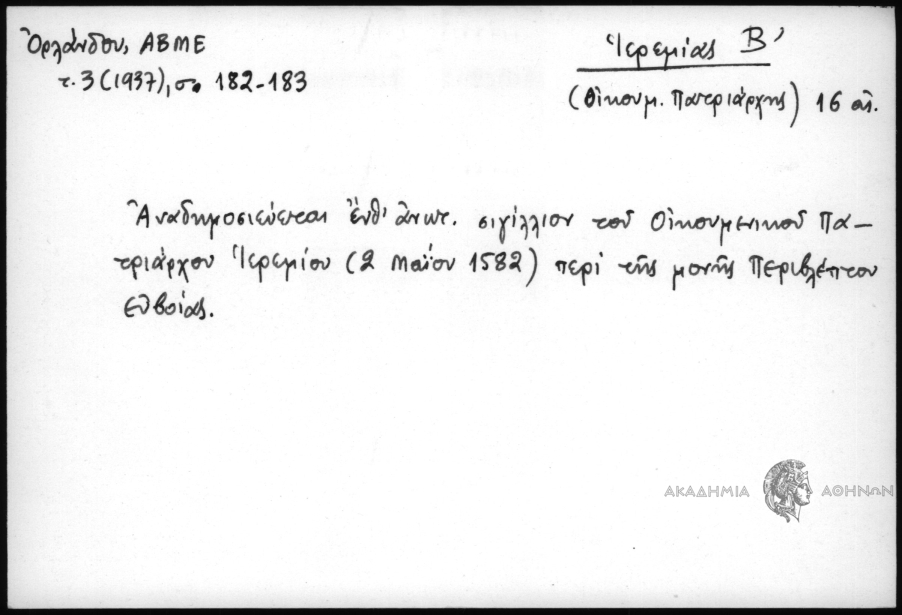 Ὀρλάνδου, ΑΒΜΕ
τ. 3 (1937), σσ. 182-183
Ἱερεμίας Β'
(Οἰκουμ. Πατριάρχης) 16 αἰ.
Ἀναδημοσιεύεται ἔνθ' ἀνωτ. σιγίλλιον τοῦ Οἰκουμενικοῦ Πα-
τριάρχου Ἱερεμίου (2 Μαΐου 1582) περὶ τῆς μονῆς Περιβλέπτου
Εὐβοίας.
ΑΚΑΔΗΜΙΑ ΑΘΗΝΩΝ